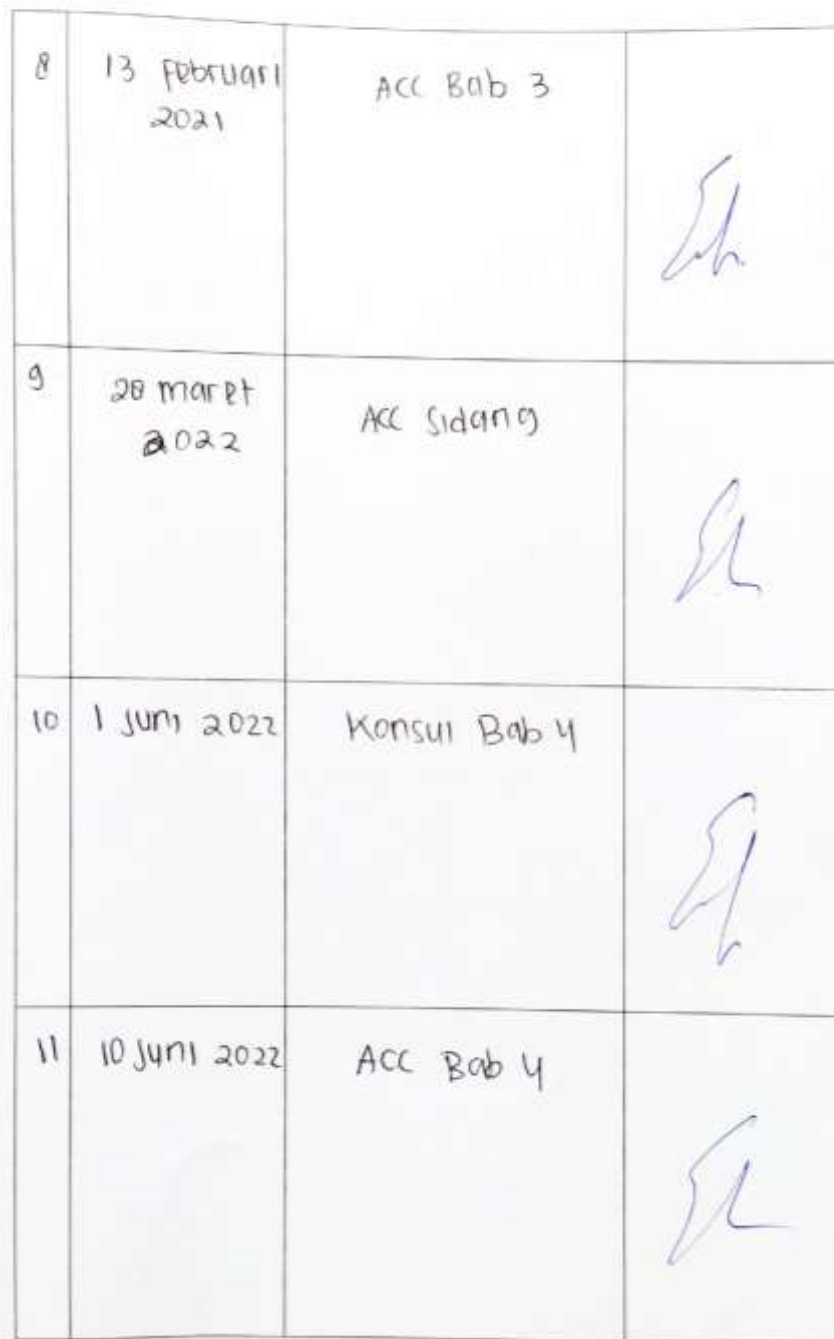 8 13 Februari ACC Bab 3
2021
9 20 maret ACC Sidang
2022
10 1 Juni 2022 Konsul Bab 4
11 10 Juni 2022 ACC Bab 4